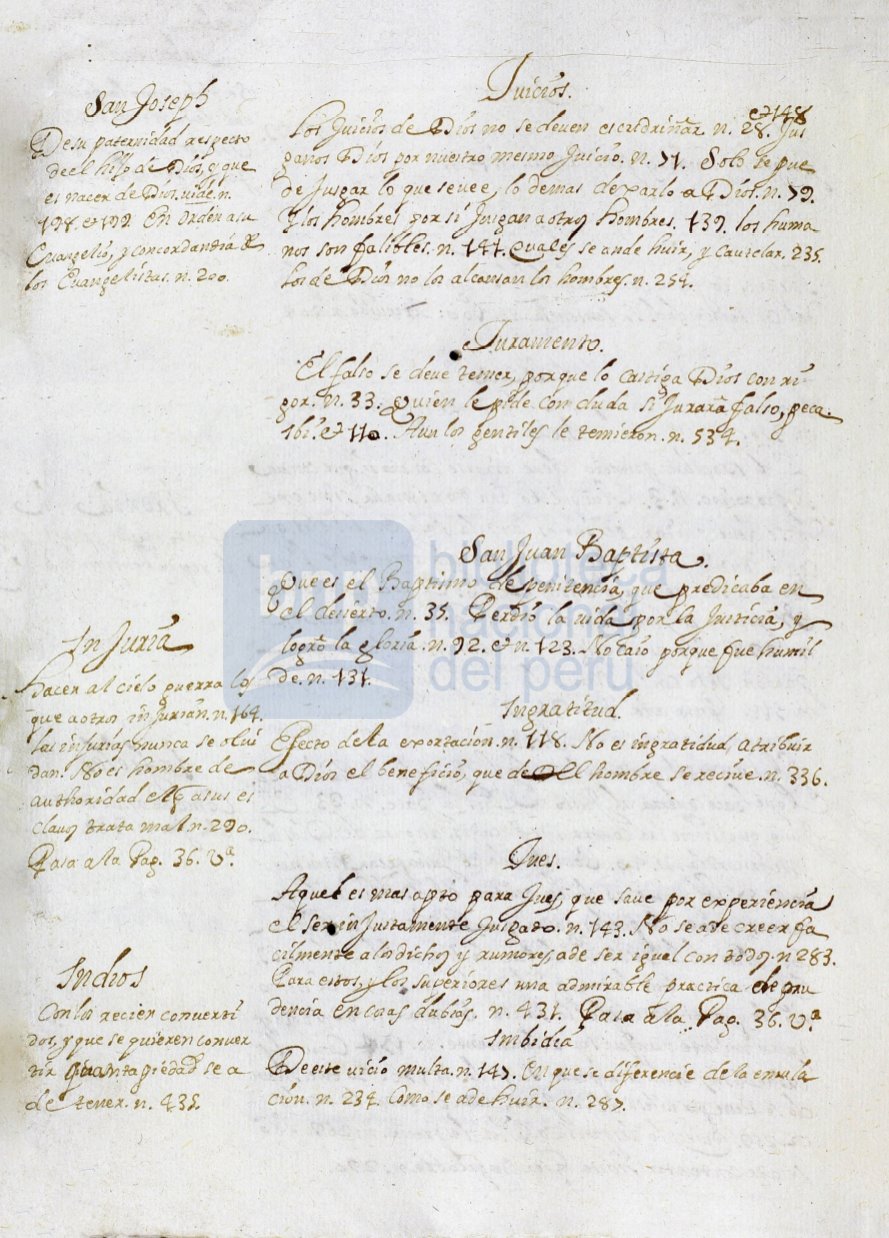 San Joseph
De su paternidad respecto
de el hijo de Dios, y que
es nacer de Dios. vide. n.
198. et 199. En orden a su
Evangelio, y concordancia de
los Evangelistas. n. 200.
Juicios.
et 148
Los Juicios de Dios no se deven escudriñar. n. 28. Jus
ganos Dios por nuestro mesmo Juicio. n. 71. Solo se pue
de Jusgar lo que se vee, lo demas dexarlo a Dios. n. 79.
Y los hombres por si Juzgan a otros hombres. 139. los huma
nos son falibles. n. 141. Cuales se ande huir, y cautelar. 235.
Los de Dios no los alcansan los hombres. n. 254.
Juramento.
El falso se deve temer, porque lo castiga Dios con ri-
gor. n. 33. Quien le pide con duda si Jurara falso, peca.
ibi. et 110. Aun los gentiles le temieron. n. 534.
San Juan Baptista.
Que es el Baptismo de penitencia, que predicaba en
el decierto. n. 35. Perdio la vida por la Justicia, y
logrò la gloria. n. 92. et n. 123. No caio porque fue humil
de. n. 131.
InJuria
hacer al cielo guerra los
que a otros injurian. n. 164.
las injurias nunca se olvi
dan. No es hombre de
authoridad el q̃ a sus es
clavos trata mal. n. 290.
Pasa a la Pag. 36. vᵃ.
Ingratitud.
Efecto de la exortacion. n. 118. No es ingratidud, atribuir
a Dios el beneficio, que de el hombre se recive. n. 336.
Jues.
Aquel es mas apto para Jues, que save por experiencia
el ser inJustamente Jusgado. n. 143. No se a de creer fa
cilmente a los dichos y rumores, a de ser igual con todos. n. 283.
Para estos, y los superiores una admirable practica de pru
dencia en cosas dubias. n. 431. Pasa a la Pag. 36. vᵃ
Indios
Con los recien converti
dos, y que se quieren conver
tir quanta piedad se a
de tener. n. 435.
Imbidia
De este vicio multa. n. 147. En que se diferencie de la emula
ción. n. 234. Como se a de huir. n. 287.
biblioteca
nacional
del perú